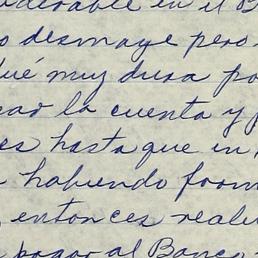 siderable en el B
o desmaye pero
ué muy dura po
car la cuenta y p
es hasta que un
habiendo form
entonces reali
pagar al Banco